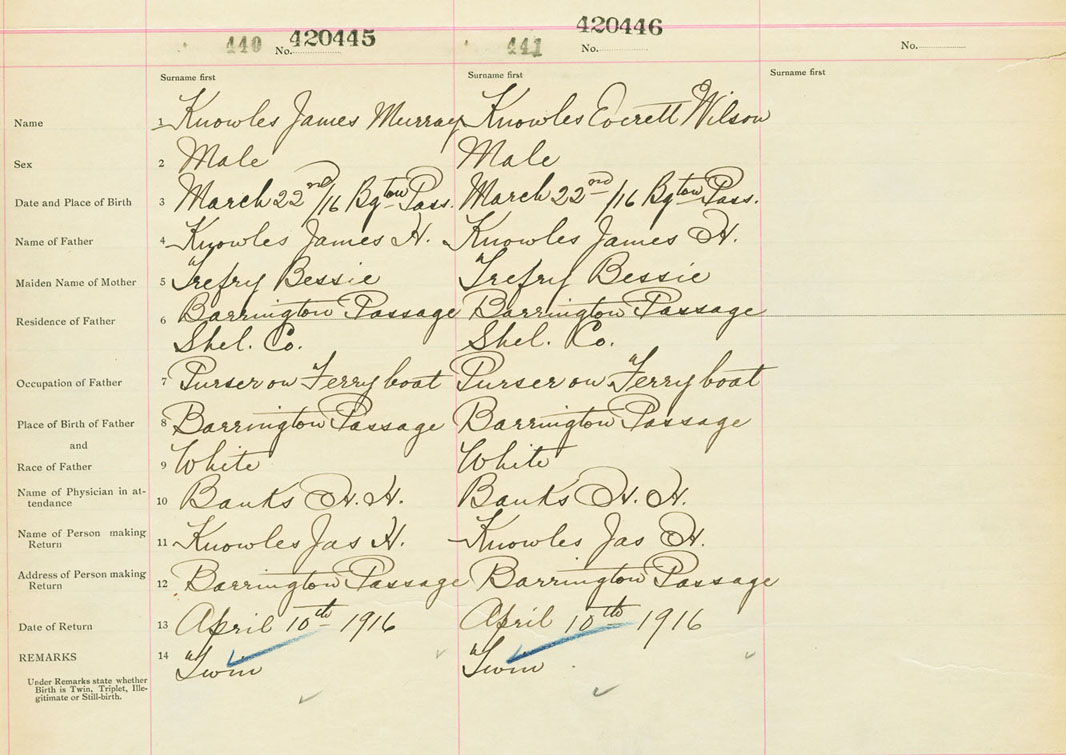 440 No. 420445 441 No. 420446 No.
Surname first Surname first Surname first
Name 1 Knowles James Murray Knowles Everett Wilson
Sex 2 Male Male
Date and Place of Birth 3 March 22nd/16 Bgton Pass. March 22nd/16 Bgton Pass.
Name of Father 4 Knowles James H. Knowles James H.
Maiden Name of Mother 5 Trefry Bessie Trefry Bessie
Residence of Father 6 Barrington Passage Barrington Passage
Shel. Co. Shel. Co.
Occupation of Father 7 Purser on Ferry boat Purser on Ferry boat
Place of Birth of Father 8 Barrington Passage Barrington Passage
and
Race of Father 9 White White
Name of Physician in at-
tendance 10 Banks H. H. Banks H. H.
Name of Person making
Return 11 Knowles Jas H. Knowles Jas H.
Address of Person making
Return 12 Barrington Passage Barrington Passage
Date of Return 13 April 10th 1916 April 10th 1916
REMARKS 14 Twin Twin
Under Remarks state whether
Birth is Twin, Triplet, Ille-
gitimate or Still-birth.